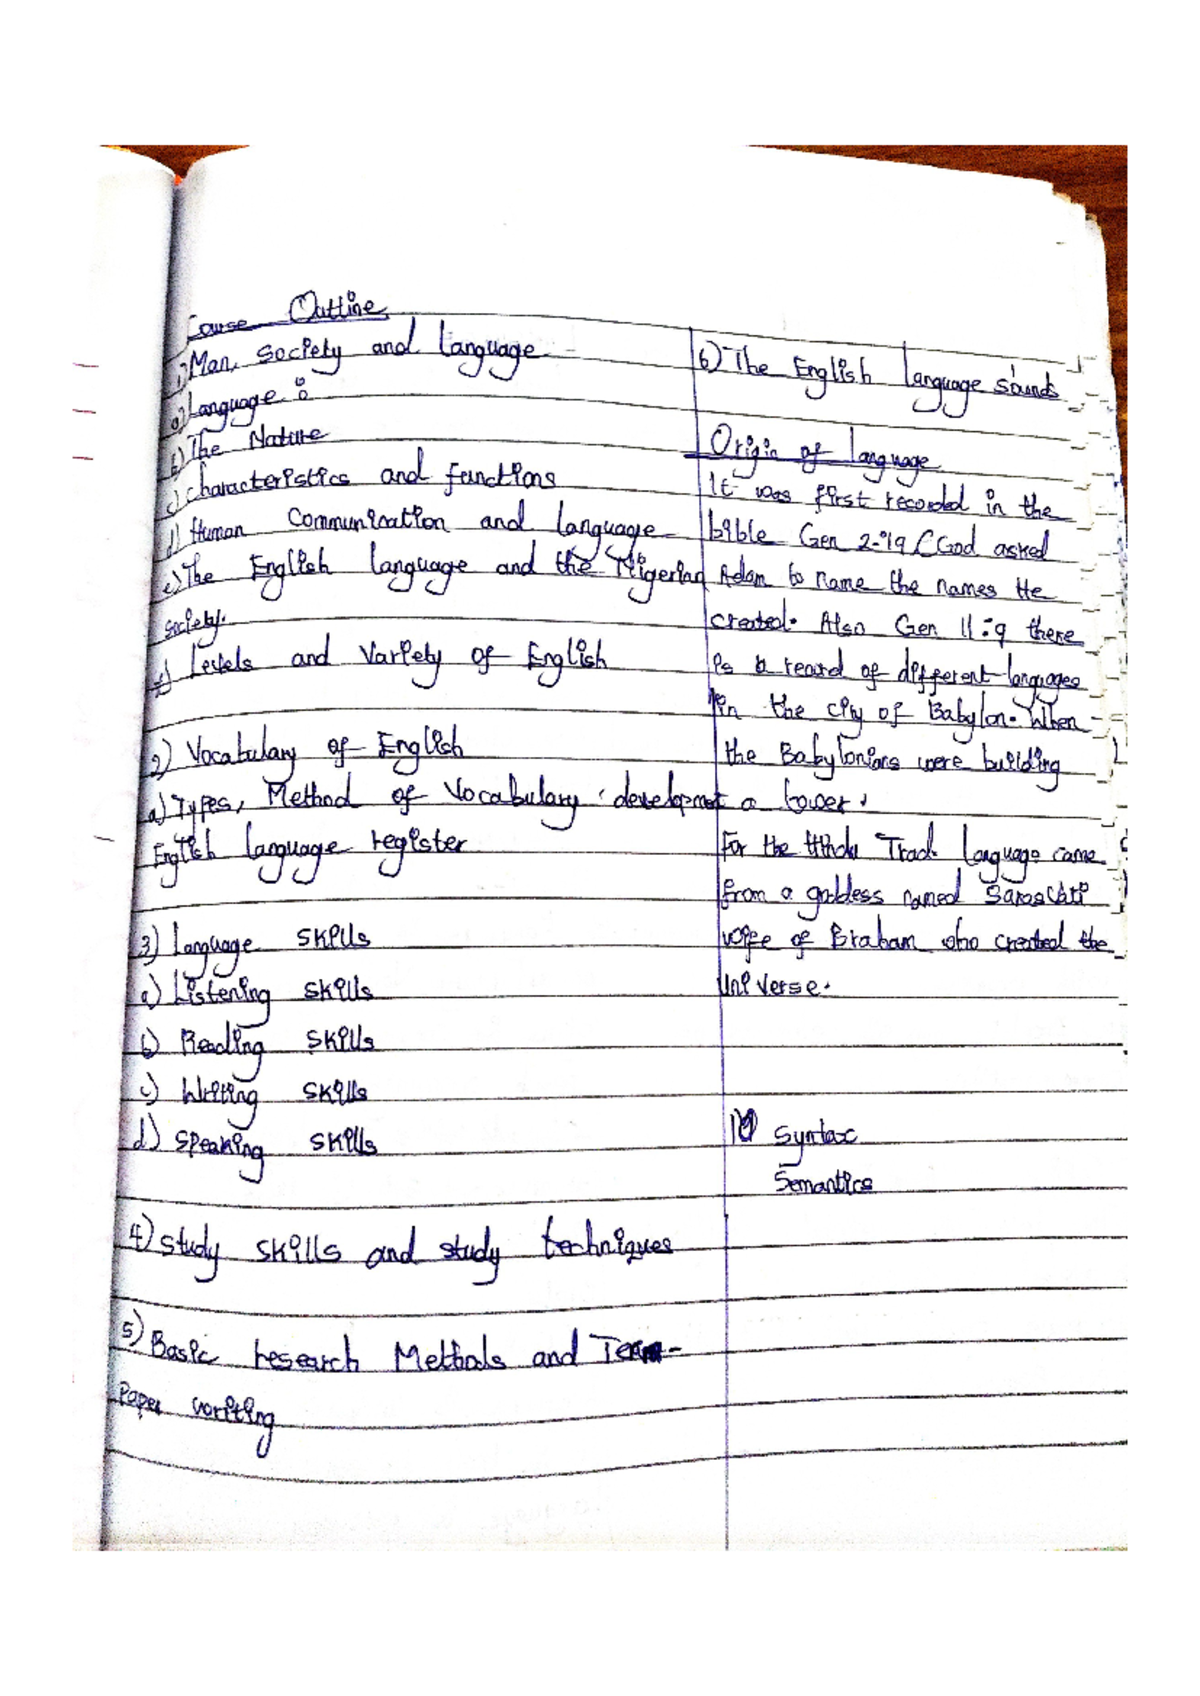 Course Outline
1) Man, Society and language
a) Language :
b) The Nature
c) characteristics and functions
d) Human Communication and language
e) The English language and the Nigerian
society.
f) Levels and Variety of English
2) Vocabulary of English
a) Types, Method of Vocabulary development
English language register
3) Language skills
a) Listening skills
b) Reading skills
c) Writing skills
d) Speaking skills
4) study skills and study techniques
5) Basic research Methods and Term-
Paper writing
6) The English language sounds
Origin of language
It was first recorded in the
bible Gen 2:19 (God asked
Adam to name the names He
created. Also Gen 11:9 there
is a record of different languages
in the city of Babylon. When
the Babylonians were building
a tower.
For the Hindu Trad. language came
from a goddess named Saraswati
wife of Braham who created the
Universe.
Syntax
Semantics